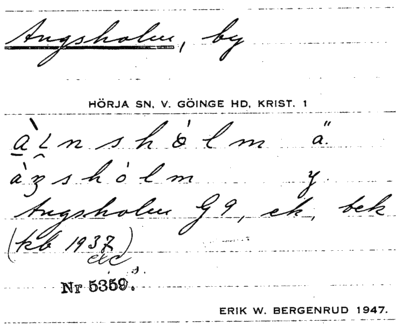 Angsholm, by
HÖRJA SN, V. GÖINGE HD, KRIST. 1
ä.
y.
Angsholm G9, ek, bek
(kb 1937)
Nr 5359.
ERIK W. BERGENRUD 1947.